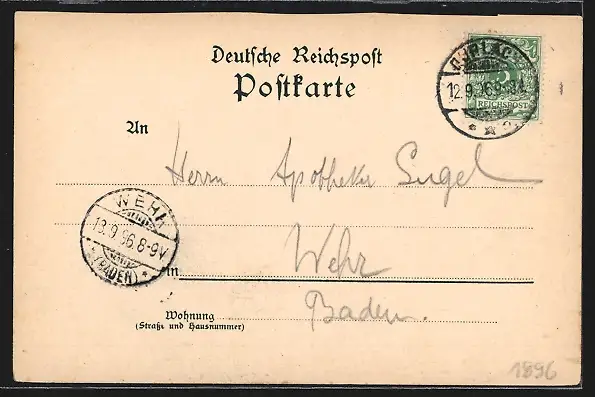 Deutsche Reichspost
Postkarte
DURLACH
12.9.96.9-
5
REICHSPOST
An
Herrn Apotheker
WEHR
13.9.96.8-9V
(BADEN)
Wehr
in
Baden.
Wohnung
(Straße und Hausnummer)
1896